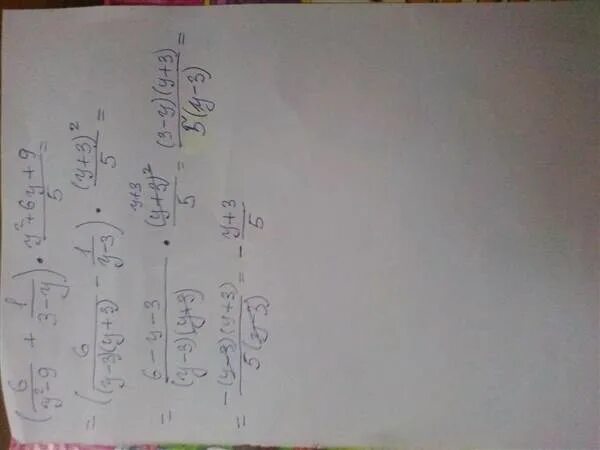 (6/(y²-9) + 1/(3-y)) · (y²+6y+9)/5 =
= (6/((y-3)(y+3)) - 1/(y-3)) · (y+3)²/5 =
= (6-y-3)/((y-3)(y+3)) · (y+3)²/5 y+3 = ((3-y)(y+3))/(5(y-3)) =
= (-(y-3)(y+3))/(5(y-3)) = - (y+3)/5